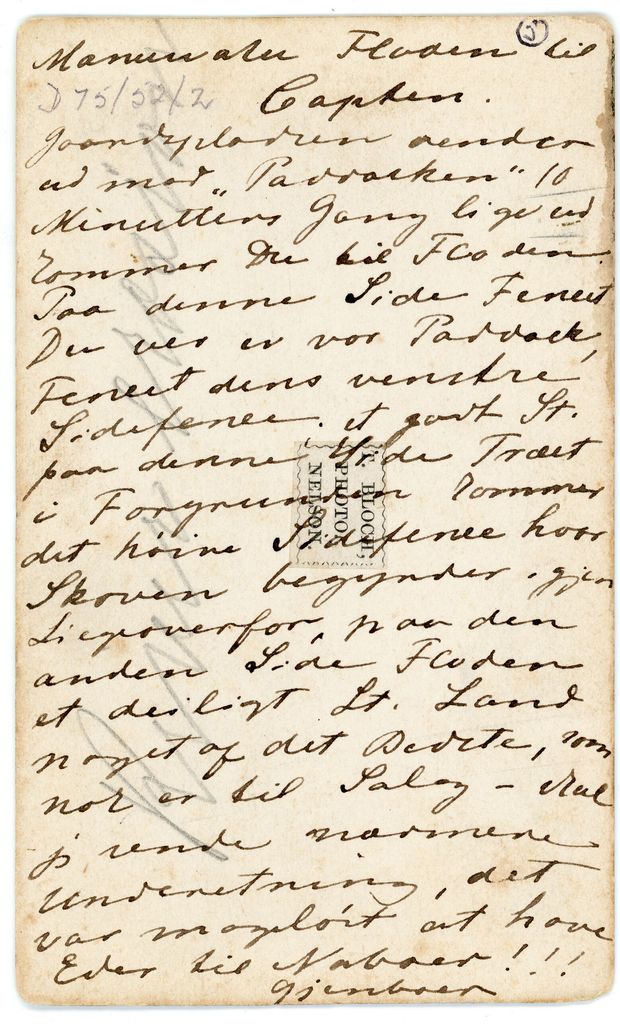 Manuwatu Floden til
D 75/52/2
Capten.
Gaardspladsen vender
ud mod "Paddocken" 10
Minutters Gang lige ud
kommer Du til Floden
Paa denne Side Fencet
Du ver er vor Paddock,
Fencet dens venstre
Sidefence. et godt St.
paa denne Side Træet
i Forgrunden kommer
det höire Sidefence hvor
Skoven begynder. gjen
Ligeoverfor, paa den
anden Side Floden
et deiligt St. Land
noget af det Bedste, som
nok er til Salg - skal
js sende nærmere
Underetning, det
var mageløst at have
Eder til Naboer!!!
Gjenboer
F. BLOCH,
PHOTO.
NELSON.